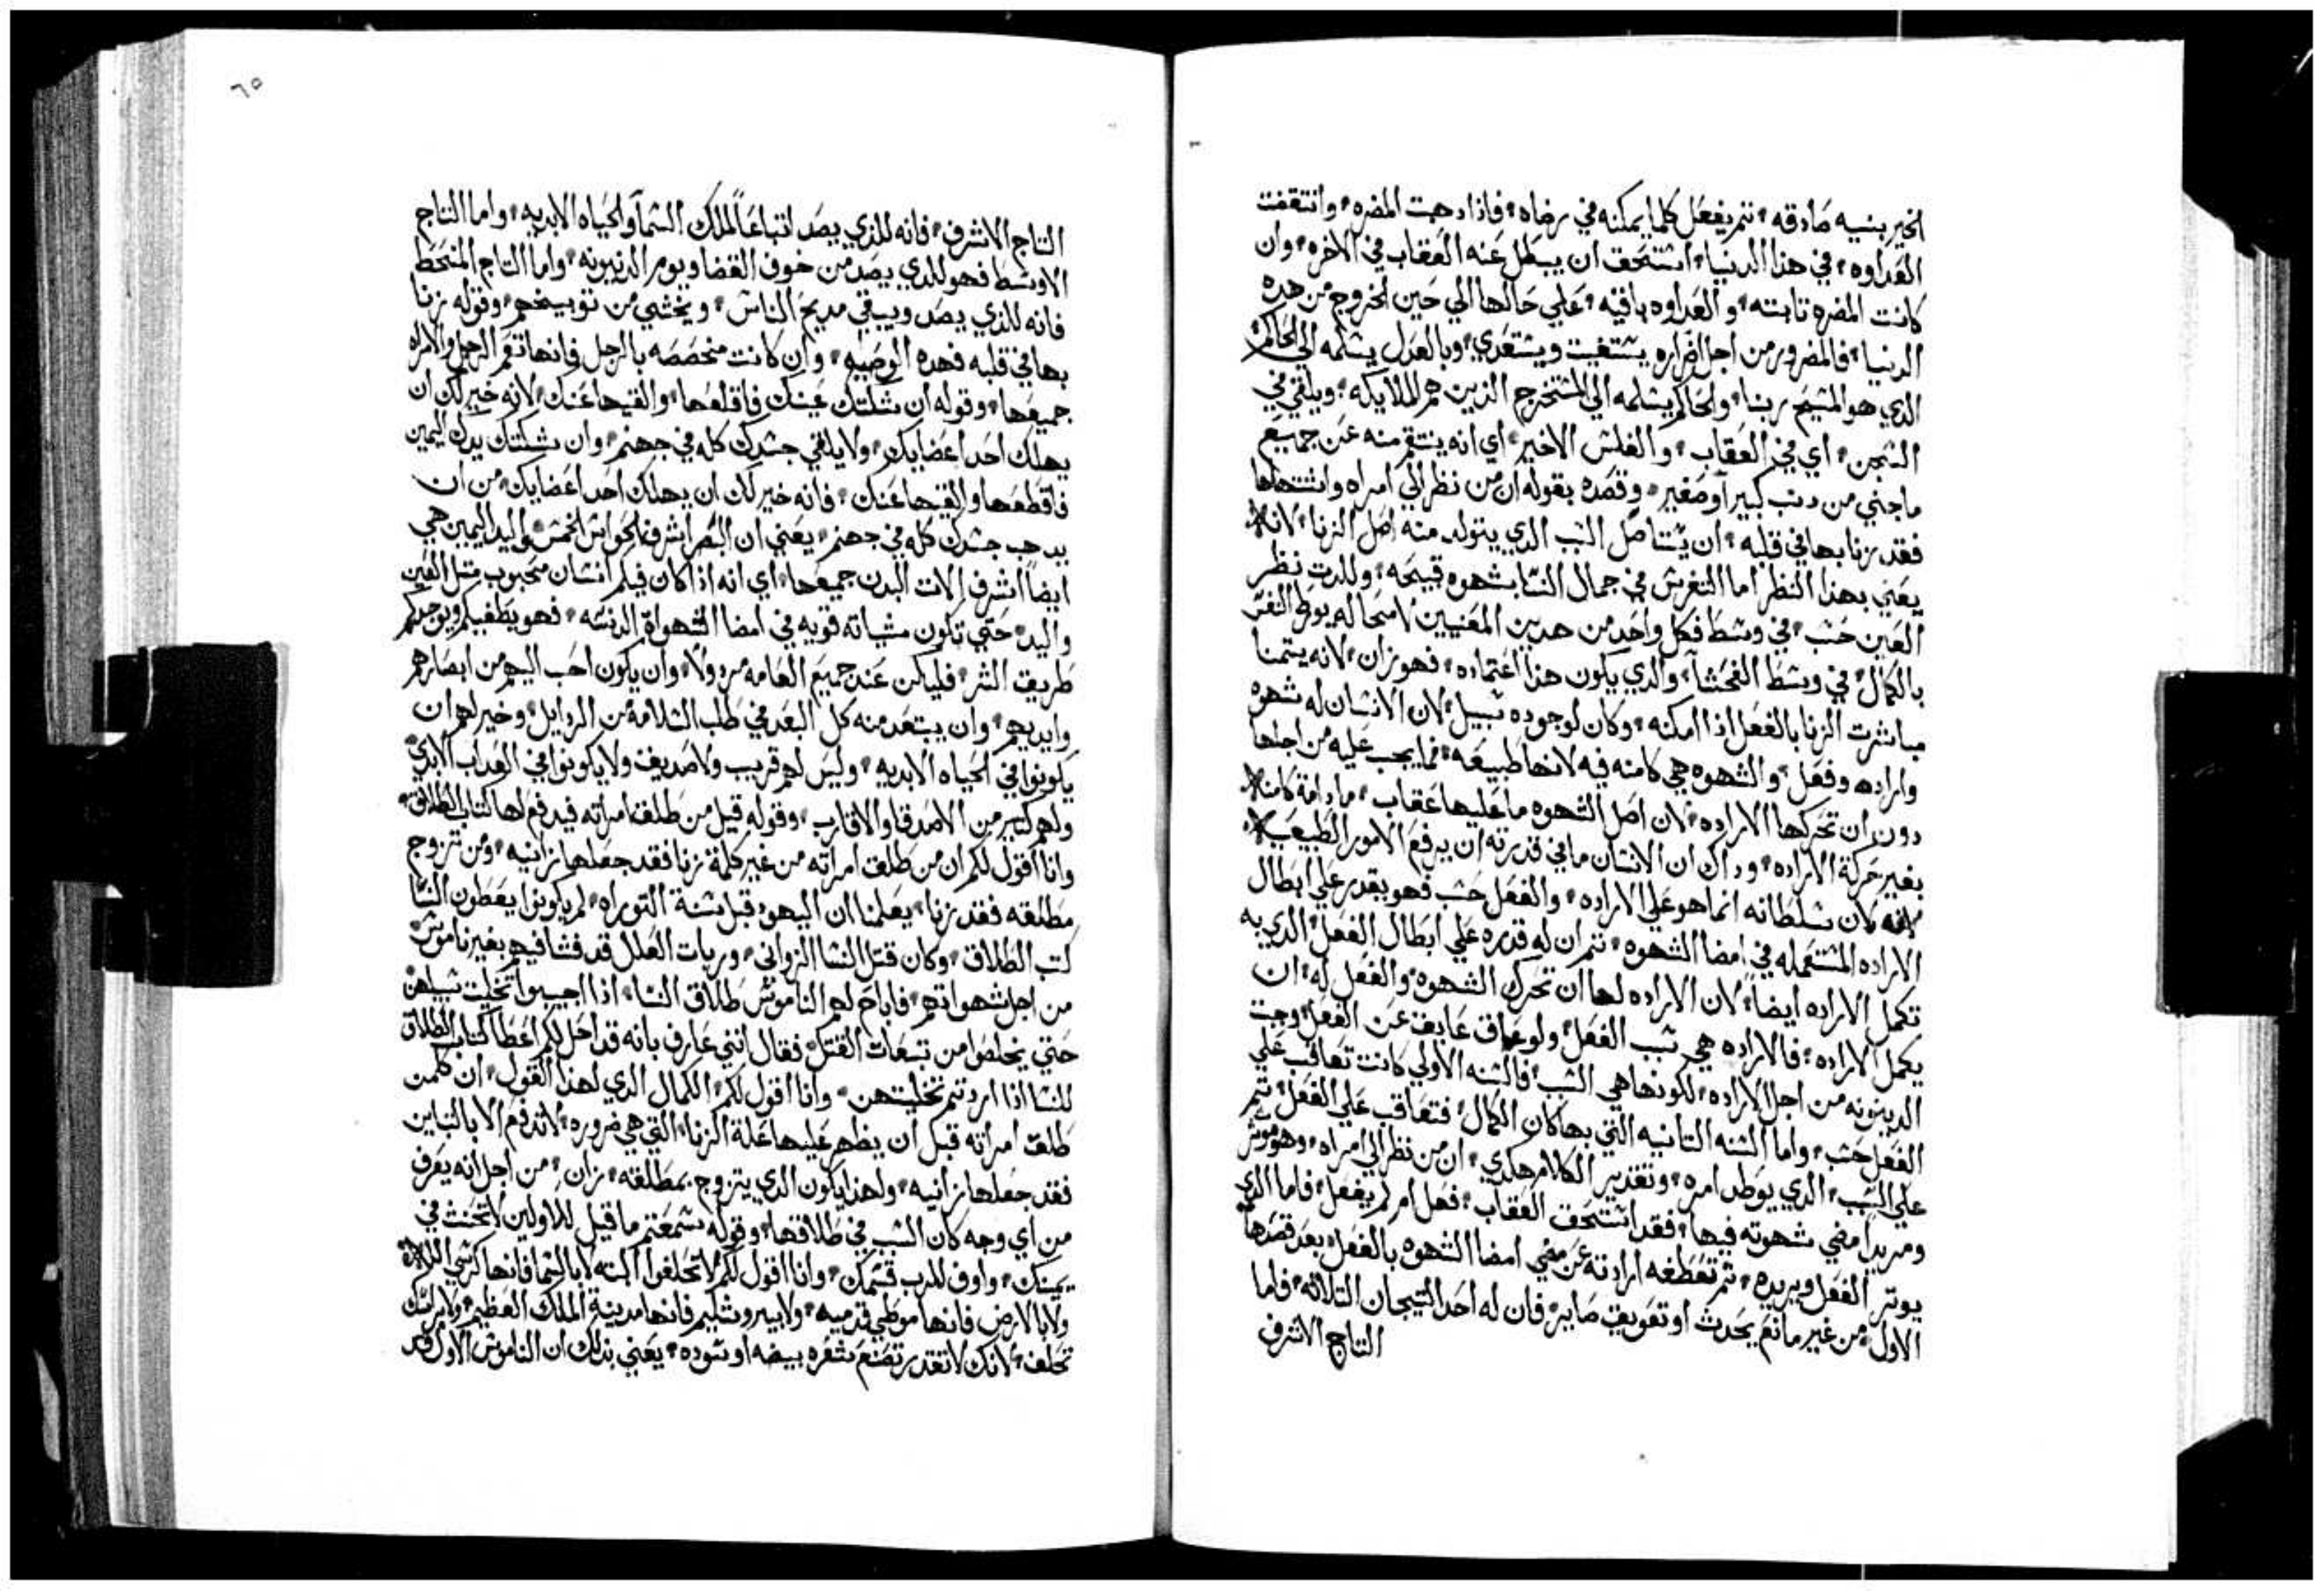 الخير بنيه صادقه، تتم يفعل كلما يمكنه في رضاه، فاذا دهبت المضره، وانتقضت
العداوه، في هذا الدنيا، استحق ان يبطل عنه العقاب في الاخره، وان
كانت المضره تابته، والعداوه باقيه، علي حالها الي حين الخروج من هده
الدنيا، فالمضرور من اجل اضراره يستغيت ويستعدي، وبالعدل يسلمه الي الحاكم
الدي هو المسيح ربنا، والحاكم يسلمه الي المستخرج الدين هم الملايكه، ويلقي في
السجن، اي في العقاب، والفلس الاخير، اي انه ينتقم منه عن جميع
ماجني من دنب كبيراً وصغير، وقصده بقوله ان من نظر الي امراه واشتهاها
فقد زنا بها في قلبه، ان يستاصل السبب الدي يتولد منه اصل الزنا، لانه
يعني بهذا النظر اما التفرس في جمال النسا بشهوه قبيحه، وللدت نظر
العين حسب، في وسط فكل واحد من هدين المعنيين لامحاله يورط النفس
بالكمال، في وسط الفحشا، والدي يكون هذا اعتماده، فهو زان، لانه يتمنا
مباشرت الزنا بالفعل اذا امكنه، وكان لوجوده سبيل، لان الانسان له شهوه
واراده وفعل، والشهوه هي كامنه فيه لانها طبيعه، فما يجب عليه من اجلها
دون ان تحركها الاراده، لان اصل الشهوه ما عليها عقاب، مادامة كامنه
بغير حركة الاراده، وداك ان الانسان ما في قدرته ان يرفع الامور الطبيعيه
لانه كان سلطانه انما هو علي الاراده، والفعل حسب فهو يقدر علي ابطال
الاراده المستعمله في امضا الشهوه، تم ان له قدره علي ابطال الفعل، الدي به
تكمل الاراده ايضاً، لان الاراده لها ان تحرك الشهوه، والفعل له، ان
يكمل الاراده، فالاراده هي سبب الفعل، ولو عاق عايق عن الفعل، وجبت
الدينونه من اجل الاراده، لكونها هي السبب، فالسنه الاولي كانت تعاقب علي
الفعل حسب، واما السنه التانيه التي بها كان الكمال، فتعاقب علي الفعل، تم
علي السبب، الدي يوطد امره، وتقدير الكلام هكدي، ان من نظر الي امراه، وهو موتر
ومريداً مضي شهوته فيها، فقد استحق العقاب، فعل ام لم يفعل، فاما الدي
يوتر الفعل ويريده، تم تقطعه ارادته عن مضي امضا الشهوه بالفعل، بعد قصدها
الاول، من غير مانع يحدث او تعويق صاير، فان له احد التيجان التلاته، فاما
التاج الاشرف
٦٥
التاج الاشرف، فانه للذي يصد اتباعاً لملك السما والحياه الابديه، واما التاج
الاوسط فهو للدي يصد من خوف القضا ويوم الدينونه، واما التاج المنحط
فانه للذي يصد ويبقي مديح الناس، ويخشي من توبيخهم، وقوله زنا
بها في قلبه فهده الوصيه، وان كانت مخصصه بالرجل فانها تعم الرجل والامراه
جميعها، وقوله ان شككتك عينك فاقلعها، والقيها عنك، لانه خير لك ان
يهلك احد اعضايك، ولا يلقي جسدك كله في جهنم، وان شككتك يدك اليمين
فاقطعها والقيها عنك، فانه خير لك ان يهلك احد اعضايك، من ان
يدهب جسدك كله في جهنم، يعني ان البصر اشرف الحواس الخمس، واليد اليمين هي
ايضاً اشرف الات البدن جميعها، اي انه اذا كان فيكم انسان محبوب متل العين
واليد، حتي تكون مشياته قويه في امضا الشهواة الدنسه، فهو يطغيكم ويوجدكم
طريق الشر، فليكن عند جميع العامه مردولاً، وان يكون احب اليهم من ابصارهم
وايديهم، وان يبتعد منه كل البعد في طلب السلامة من الردايل، وخير لهم ان
يكونوا في الحياه الابديه، وليس لهم قريب ولا صديق ولا يكونوا في العداب الابدي
ولهم كتير من الاصدقا والاقارب، وقوله قيل من طلق امراته فيدفع لها كتاب الطلاق
وانا اقول لكم ان من طلق امراته من غير كلمة زنا فقد جعلها زانيه، ومن تزوج
مطلقه فقد زنا، يعلمنا ان اليهود قبل سنة التوراه، لم يكونوا يعطون النسا
كتب الطلاق، وكان قتل النسا الزواني، وربات العلل قد فشا فيهم بغير ناموس
من اجل شهواتهم، فاباح لهم الناموس طلاق النسا، اذا احبوا تخليت سبيلهن
حتي يخلصوا من تبعات القتل، فقال انني عارف بانه قد احل لكم اعطا كتاب الطلاق
للنسا اذا اردتم تخليتهن، وانا اقول لكم، الكمال الدي لهذا القول، ان كلمن
طلق امراته قبل ان يظهر عليها علة الزنا، التي هي ضروره، لاتدفع الا بالتباين
فقد جعلها زانيه، ولهذا يكون الدي يتزوج بمطلقه، زان، من اجل انه يعرف
من اي وجه كان السبب في طلاقها، وقوله سمعتم ما قيل للاولين لا تحنت في
يمينك، واوف للرب قسمك، وانا اقول لكم لا تحلفوا البته لا بالسما فانها كرسي الله
ولا بالارض فانها موطي قدميه، ولا بيروشليم فانها مدينة الملك العظيم، ولا براسك
تحلف، لانك لا تقدر تصنع شعره بيضه او سوده، يعني بدلك ان الناموس الاول قد